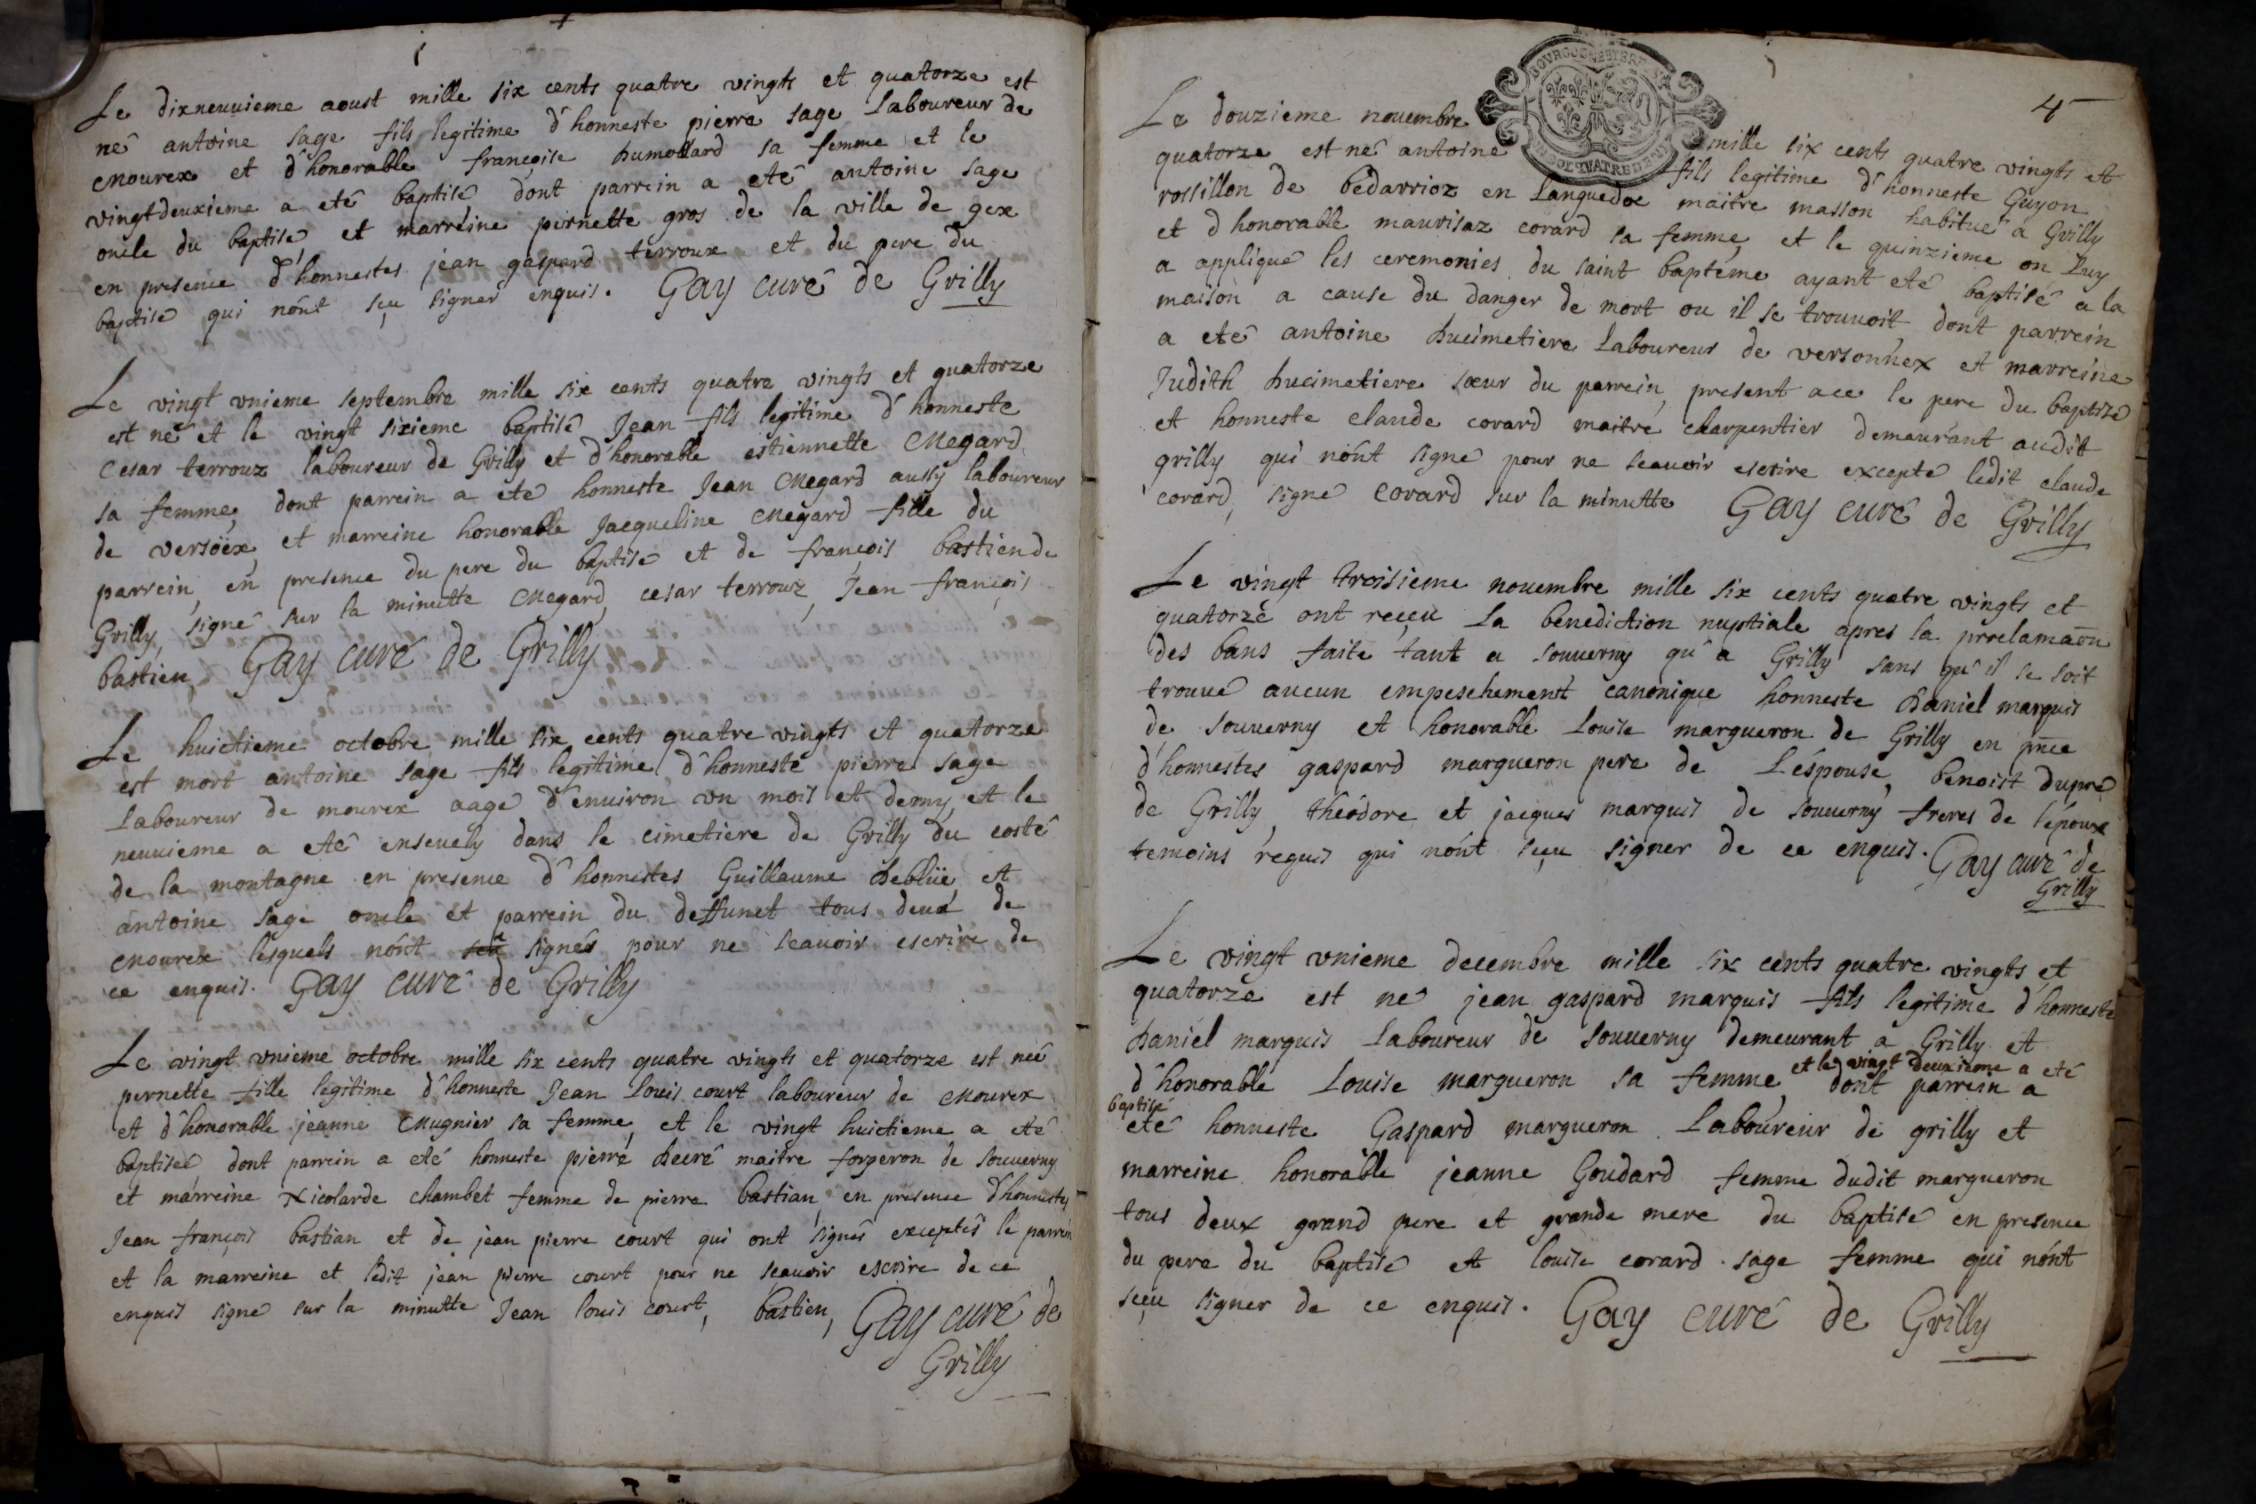 Le dixneuuieme aoust mille six cents quatre vingts et quatorze est
né antoine sage fils legitime d'honneste pierre sage Laboureur de
mourex et d'honorable françoise humollard sa femme et le
vingtdeuxieme a eté baptisé dont parrein a eté antoine sage
oncle du baptisé, et marreine pernette gros de la ville de gex
en presence d'honnestes jean gaspard terroux et du pere du
baptisé qui n'ont sçu signer enquis. Gay curé de Grilly
Le vingt vnieme septembre mille six cents quatre vingts et quatorze
est né et le vingt sixieme baptisé Jean fils legitime d'honneste
Cesar terroux laboureur de Grilly et d'honorable estiennette Megard
sa femme, dont parrein a eté honneste Jean Megard aussy laboureur
de versoëx, et marreine honorable Jacqueline Megard fille du
parrein, en presence du pere du baptisé et de françois bastien de
Grilly, signé sur la minutte Megard, cesar terroux, Jean françois
bastien, Gay curé de Grilly
Le huictieme octobre mille six cents quatre vingts et quatorze
est mort antoine sage fils legitime d'honneste pierre sage
Laboureur de mourex aagé d'enuiron vn mois et demy, et le
neuuieme a eté enseuely dans le cimetiere de Grilly du costé
de la montagne en presence d'honnestes Guillaume deblüe et
antoine sage oncle et parrein du deffunct tous deux de
mourex lesquels n'ont sçu signés pour ne scauoir escrire de
ce enquis. Gay curé de Grilly
Le vingt vnieme octobre mille six cents quatre vingts et quatorze est neé
pernette fille legitime d'honneste Jean Louis court laboureur de mourex
et d'honorable jeanne Mugnier sa femme, et le vingt huictieme a eté
baptiseé dont parrein a eté honneste pierre decré maitre forgeron de souuerny
et marreine Nicolarde chambet femme de pierre bastian, en presence d'honnestes
Jean françois bastian et de jean pierre court qui ont signés exceptés le parrein
et la marreine et ledit jean pierre court pour ne scauoir escrire de ce
enquis signé sur la minutte Jean louis court, bastien, Gay curé de
Grilly
4
Le douzieme nouembre mille six cents quatre vingts et
quatorze est né antoine fils legitime d'honneste Guyon
rossillon de bedarrioz en Languedoc maitre masson habitué a Grilly
et d'honorable maurisaz corard sa femme, et le quinzieme on Luy
a appliqué les ceremonies du saint baptéme ayant eté baptisé a la
maison a cause du danger de mort ou il se trouuoit dont parrein
a eté antoine ducimetiere Laboureur de versonnex et marreine
Judith ducimetiere sœur du parrein, present ace le pere du baptizé
et honneste claude corard maitre charpentier demeurant audit
grilly qui n'ont signé pour ne scauoir escrire excepté ledit claude
corard, signé corard sur la minutte Gay curé de Grilly
Le vingt troisieme nouembre mille six cents quatre vingts et
quatorze ont reçeu La benediction nuptiale apres la prrclamaõn
des bans faite tant a souuerny qu'a Grilly sans qu'il se soit
trouué aucun empeschement canonique honneste daniel marquis
de souuerny et honorable Louise margueron de Grilly en pñce
d'honnestes gaspard margueron pere de L'éspouse, benoist dupré
de Grilly, théodore et jacques marquis de souuerny freres de l'époux
temoins requis qui n'ont sçeu signer de ce enquis. Gay curé de
Grilly
Le vingt vnieme decembre mille six cents quatre vingts et
quatorze est né jean gaspard marquis fils legitime d'honneste
daniel marquis Laboureur de souuerny demeurant a Grilly et
d'honorable Louise margueron sa femme, et le vingt deuxieme a eté
baptisé dont parrein a
eté honneste Gaspard margueron Laboureur de grilly et
marreine honorable jeanne Goudard femme dudit margueron
tous deux grand pere et grande mere du baptisé en presence
du pere du baptisé et louise corard sage femme qui n'ont
sçeu signer de ce enquis. Gay curé de Grilly